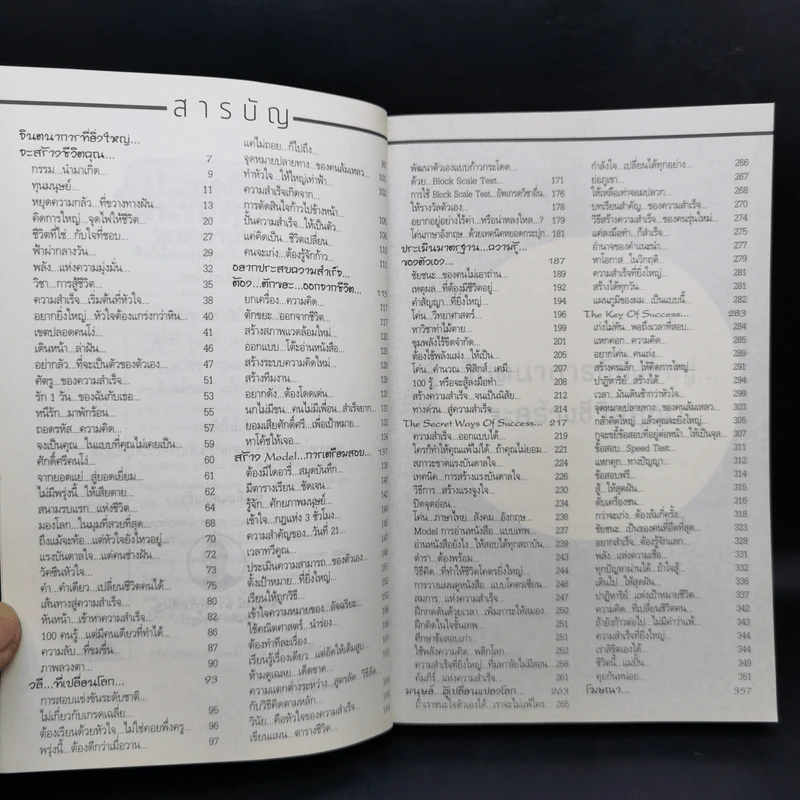 สารบัญ
จินตนาการที่ยิ่งใหญ่...
จะสร้างชีวิตคุณ... 7
กรรม...นำมาเกิด 9
ทุนมนุษย์ 11
หยุดความกลัว...ที่ขวางทางฝัน 13
คิดการใหญ่...จุดไฟให้ชีวิต 20
ชีวิตที่ใช่...กับใจที่ชอบ... 27
ฟ้าผ่ากลางวัน 29
พลัง...แห่งความมุ่งมั่น 32
วิชา...การสู้ชีวิต 35
ความสำเร็จ...เริ่มต้นที่หัวใจ 38
อยากยิ่งใหญ่...หัวใจต้องแกร่งกว่าหิน... 40
เขตปลอดคนโง่... 41
เดินหน้า...ล่าฝัน 46
อย่ากลัว...ที่จะเป็นตัวของตัวเอง 47
ศัตรู...ของความสำเร็จ 51
รัก 1 วัน...ของฉันกับเธอ... 53
หนีรัก...มาพักร้อน... 55
ถอดรหัส...ความคิด... 57
จงเป็นคุณ...ในแบบที่คุณไม่เคยเป็น... 59
ศักดิ์ศรีคนโง่... 60
จากยอดแย่...สู่ยอดเยี่ยม... 61
ไม่มีพรุ่งนี้...ให้เสียดาย... 62
สนามรบแรก...แห่งชีวิต 64
มองโลก...ในมุมที่สวยที่สุด... 68
ถึงแม้จะท้อ...แต่หัวใจยังไหวอยู่... 70
แรงบันดาลใจ...แด่คนช่างฝัน... 72
วัคซีนหัวใจ... 73
คำ...คำเดียว...เปลี่ยนชีวิตคนได้... 75
เส้นทางสู่ความสำเร็จ... 76
หันหน้า...เข้าหาความสำเร็จ 82
100 คนรู้...แต่มีคนเดียวที่ทำได้... 86
ความลับ...ที่ขมขื่น... 87
ภาพลวงตา... 90
วลี...ที่เปลี่ยนโลก... 93
การสอบแข่งขันระดับชาติ...
ไม่เกี่ยวกับเกรดเฉลี่ย... 95
ต้องเรียนด้วยหัวใจ...ไม่ใช่คอยพึ่งครู... 96
พรุ่งนี้...ต้องดีกว่าเมื่อวาน... 97
แค่ไม่ถอย...ก็ไปถึง...
จุดหมายปลายทาง...ของคนล้มเหลว...
ทำหัวใจ...ให้ใหญ่เท่าฟ้า
ความสำเร็จเกิดจาก...
การตัดสินใจก้าวไปข้างหน้า
ปั้นความสำเร็จ...ให้เป็นตัว...
แค่คิดเป็น...ชีวิตเปลี่ยน...
คนจะเก่ง...ต้องรู้จักก้าว...
อยากประสบความสำเร็จ...
ต้อง...ตักขยะ...ออกจากชีวิต...
ยกเครื่อง...ความคิด...
ตักขยะ...ออกจากชีวิต...
สร้างสภาพแวดล้อมใหม่...
ออกแบบ...โต๊ะอ่านหนังสือ...
สร้างระบบความคิดใหม่...
สร้างทีมงาน...
อยากดัง...ต้องโดดเด่น...
นกไม่มีขน...คนไม่มีเพื่อน...สำเร็จยาก...
ยอมเสียศักดิ์ศรี...เพื่อเป้าหมาย...
หาโค้ชให้เจอ...
สร้าง Model...การเตรียมสอบ... 137
ต้องมีไดอารี่...สมุดบันทึก...
มีตารางเรียน...ชัดเจน...
รู้จัก...ศักยภาพมนุษย์...
เข้าใจ...กฎแห่ง 3 ชั่วโมง...
ความสำคัญของ...วันที่ 21...
เวลาทวีคูณ...
ประเมินความสามารถ...ของตัวเอง...
ตั้งเป้าหมาย...ที่ยิ่งใหญ่...
เรียนให้ถูกวิธี...
เข้าใจความหมายของ...อัจฉริยะ...
ใช้คณิตศาสตร์...นำร่อง...
ต้องทำทีละเรื่อง...
เรียนรู้เรื่องเดียว...แต่อัดให้เต็มสูบ...
ห้ามดูเฉลย...เด็ดขาด...
ความแตกต่างระหว่าง...สูตรลัด...วิธีลัด...
กับวิธีคิดตามหลัก...
วินัย...คือหัวใจของความสำเร็จ...
เขียนแผน...ตารางชีวิต...
พัฒนาตัวเองแบบก้าวกระโดด...
ด้วย...Block Scale Test... 171
การใช้ Block Scale Test...อัพเกรดวิชาอื่น... 176
ให้รางวัลตัวเอง... 178
อยากอยู่อย่างไร้ค่า...หรือน่าหลงใหล...? 179
โค่นภาษาอังกฤษ...ด้วยเทคนิคหยอดกระปุก... 181
ประเมินมาตรฐาน...ความรู้...
ของตัวเอง... 187
ชัยชนะ...ของคนไม่เอาถ่าน... 189
เหตุผล...ที่ต้องมีชีวิตอยู่... 192
คำสัญญา...ที่ยิ่งใหญ่... 193
โค่น...วิทยาศาสตร์... 194
หาวิชาท่าไม้ตาย... 195
ขุมพลังไร้ขีดจำกัด... 198
ต้องใช้พลังแฝง...ให้เป็น... 199
โค่น...คำนวณ...ฟิสิกส์...เคมี... 201
100 รู้...หรือจะสู้ลงมือทำ... 204
สร้างความสำเร็จ...จนเป็นนิสัย... 214
ทางด่วน...สู่ความสำเร็จ... 214
The Secret Ways Of Success... 217
ความสำเร็จ...ออกแบบได้... 219
ใครก็ทำให้คุณแพ้ไม่ได้...ถ้าคุณไม่ยอม... 221
สภาวะขาดแรงบันดาลใจ... 224
เทคนิค...การสร้างแรงบันดาลใจ... 226
วิธีการ...สร้างแรงจูงใจ... 230
ปิดจุดอ่อน... 234
โค่น...ภาษาไทย...สังคม...อังกฤษ... 236
Model การอ่านหนังสือ...แบบเทพ...
อ่านหนังสือยังไง...ให้สอบได้ทุกสถาบัน...
ตำรา...ต้องพร้อม...
วิธีคิด...ที่ทำให้ชีวิตโคตรยิ่งใหญ่...
การวางแผนดูหนังสือ...แบบโคตรเซียน...
สมการ...แห่งความสำเร็จ... 245
ฝึกกดดันด้วยเวลา...เพิ่มภาระให้สมอง... 247
ฝึกคิดในใจขั้นเทพ... 251
ศึกษาข้อสอบเก่า... 251
ใช้พลังความคิด...พลิกโลก... 251
ความสำเร็จที่ยิ่งใหญ่...คัมภาลัยไม่มีสอน... 251
คัมภีร์...แห่งความสำเร็จ... 261
มนุษย์...ผู้เปลี่ยนแปลงโลก... 263
ถ้าเราชนะใจตัวเองได้...เราจะไม่แพ้ใคร... 265
กำลังใจ...เปลี่ยนได้ทุกอย่าง... 266
ย่อภูเขา...
ให้เหลือเท่าจอมปลวก... 268
บทเรียนสำคัญ...ของความสำเร็จ... 270
วิธีสร้างความสำเร็จ...ของคนรุ่นใหม่... 274
แต่ลงมือทำ...ก็สำเร็จ... 275
อำนาจของคำแนะนำ... 277
หาโอกาส...ในวิกฤติ... 278
ความสำเร็จที่ยิ่งใหญ่... 279
สร้างได้ทุกวัน... 281
แผนภูมิของผม...เป็นแบบนี้... 282
The Key Of Success... 283
เก่งไม่ทัน...พอถึงเวลาที่สอบ... 284
แหกคอก...ความคิด... 287
อยากโค่น...คนเก่ง... 289
สร้างคนเล็ก...ให้คิดการใหญ่... 291
ปาฏิหาริย์...สร้างได้... 294
เวลา...มันเดินช้ากว่าหัวใจ... 299
จุดหมายปลายทาง...ของคนล้มเหลว... 303
กล้าคิดใหญ่...แล้วคุณจะยิ่งใหญ่... 304
กูจะขยี้ข้อสอบที่อยู่ต่อหน้า...ให้เป็นจุล... 307
ข้อสอบ...Speed Test... 311
แหกคุก...ทางปัญญา... 312
ข้อสอบฟรี... 314
สู้...ให้สุดฝัน... 315
ดับเครื่องชน... 316
กว่าจะเก่ง...ต้องล้มกี่ครั้ง... 318
ชัยชนะ...เป็นของคนที่อึดที่สุด... 323
อยากสำเร็จ...ต้องรู้จักแลก... 328
พลัง...แห่งความเชื่อ... 331
ทุกปัญหาผ่านได้...ถ้าใจสู้... 332
เดินไป...ให้สุดฝัน... 336
ปาฏิหาริย์...แห่งเป้าหมายชีวิต... 337
ความคิด...ที่เปลี่ยนชีวิตคน... 342
ถ้ายังก้าวต่อไป...ไม่มีคำว่าแพ้... 342
ความสำเร็จที่ยิ่งใหญ่... 344
เราลิขิตเองได้... 344
ชีวิตนี้...แม่ปั้น... 349
คุยกันหน่อย... 351
โฆษณา... 357